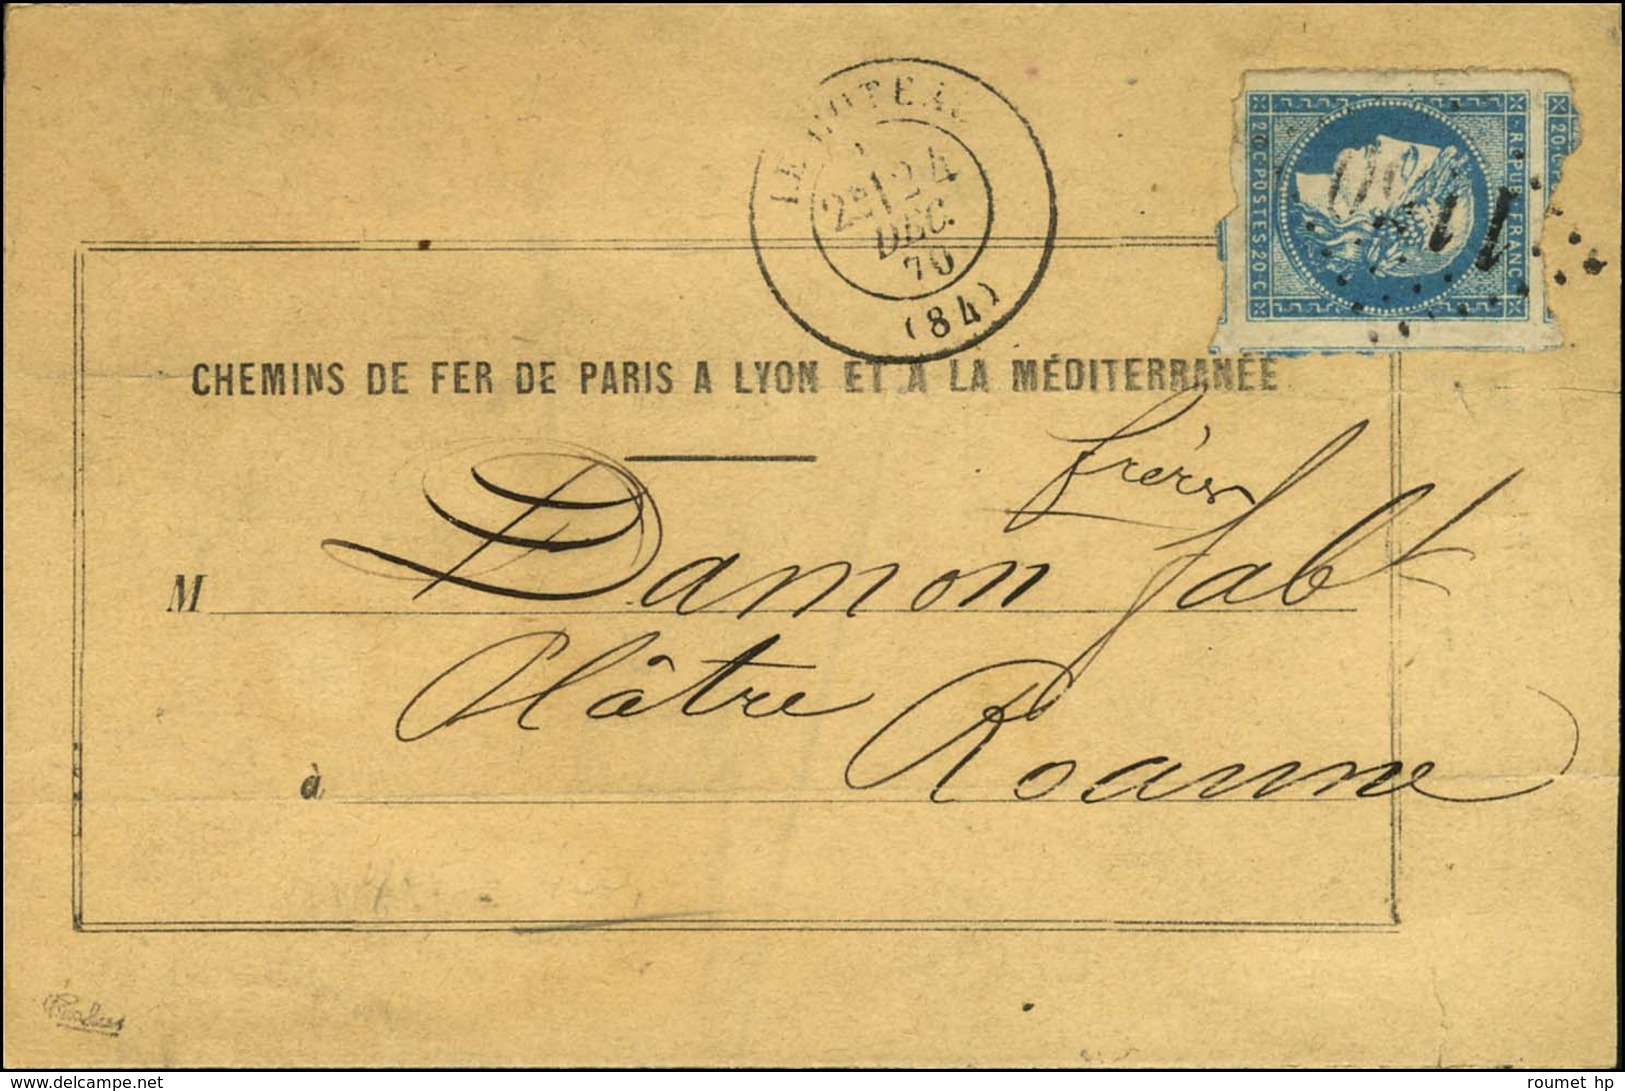 LE COTEAU
2E 24
DEC.
70
(84)
20·C·POSTES·20·C
·REPUB·FRANC·
20·C
CHEMINS DE FER DE PARIS A LYON ET A LA MÉDITERRANÉE
frères
M Damon fabt
Plâtre
à Roanne
www.delcampe.net
roumet hp